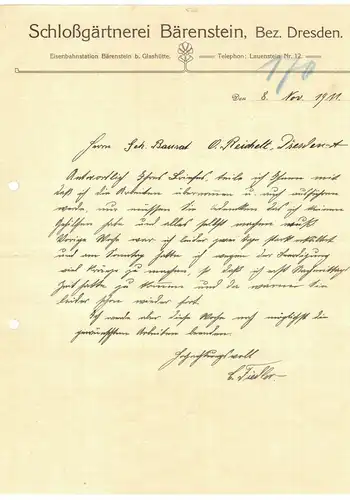 Schloßgärtnerei Bärenstein, Bez. Dresden.
Eisenbahnstation Bärenstein b. Glashütte. Telephon: Lauenstein Nr. 12.
170
Den 8. Nov. 1911.
Herrn Geh. Baurat O. Reichelt, Dresden-A
Antwortlich Ihres Briefes, teile ich Ihnen mit
daß ich die Arbeiten übernommen u. auch ausführen
werde, nur müssen Sie bedenken das ich keinen
Gehilfen habe und alles selbst machen muß
Vorige Woche war ich leider zwei Tage stark erkältet
und am Sonntag hatte ich wegen der Beerdigung
viel Kränze zu machen, so daß ich erst Nachmittag
Zeit hatte zu kommen und da waren Sie
leider schon wieder fort.
Ich werde aber diese Woche noch möglichst die
gewünschten Arbeiten beenden.
Hochachtungsvoll
Fiedler